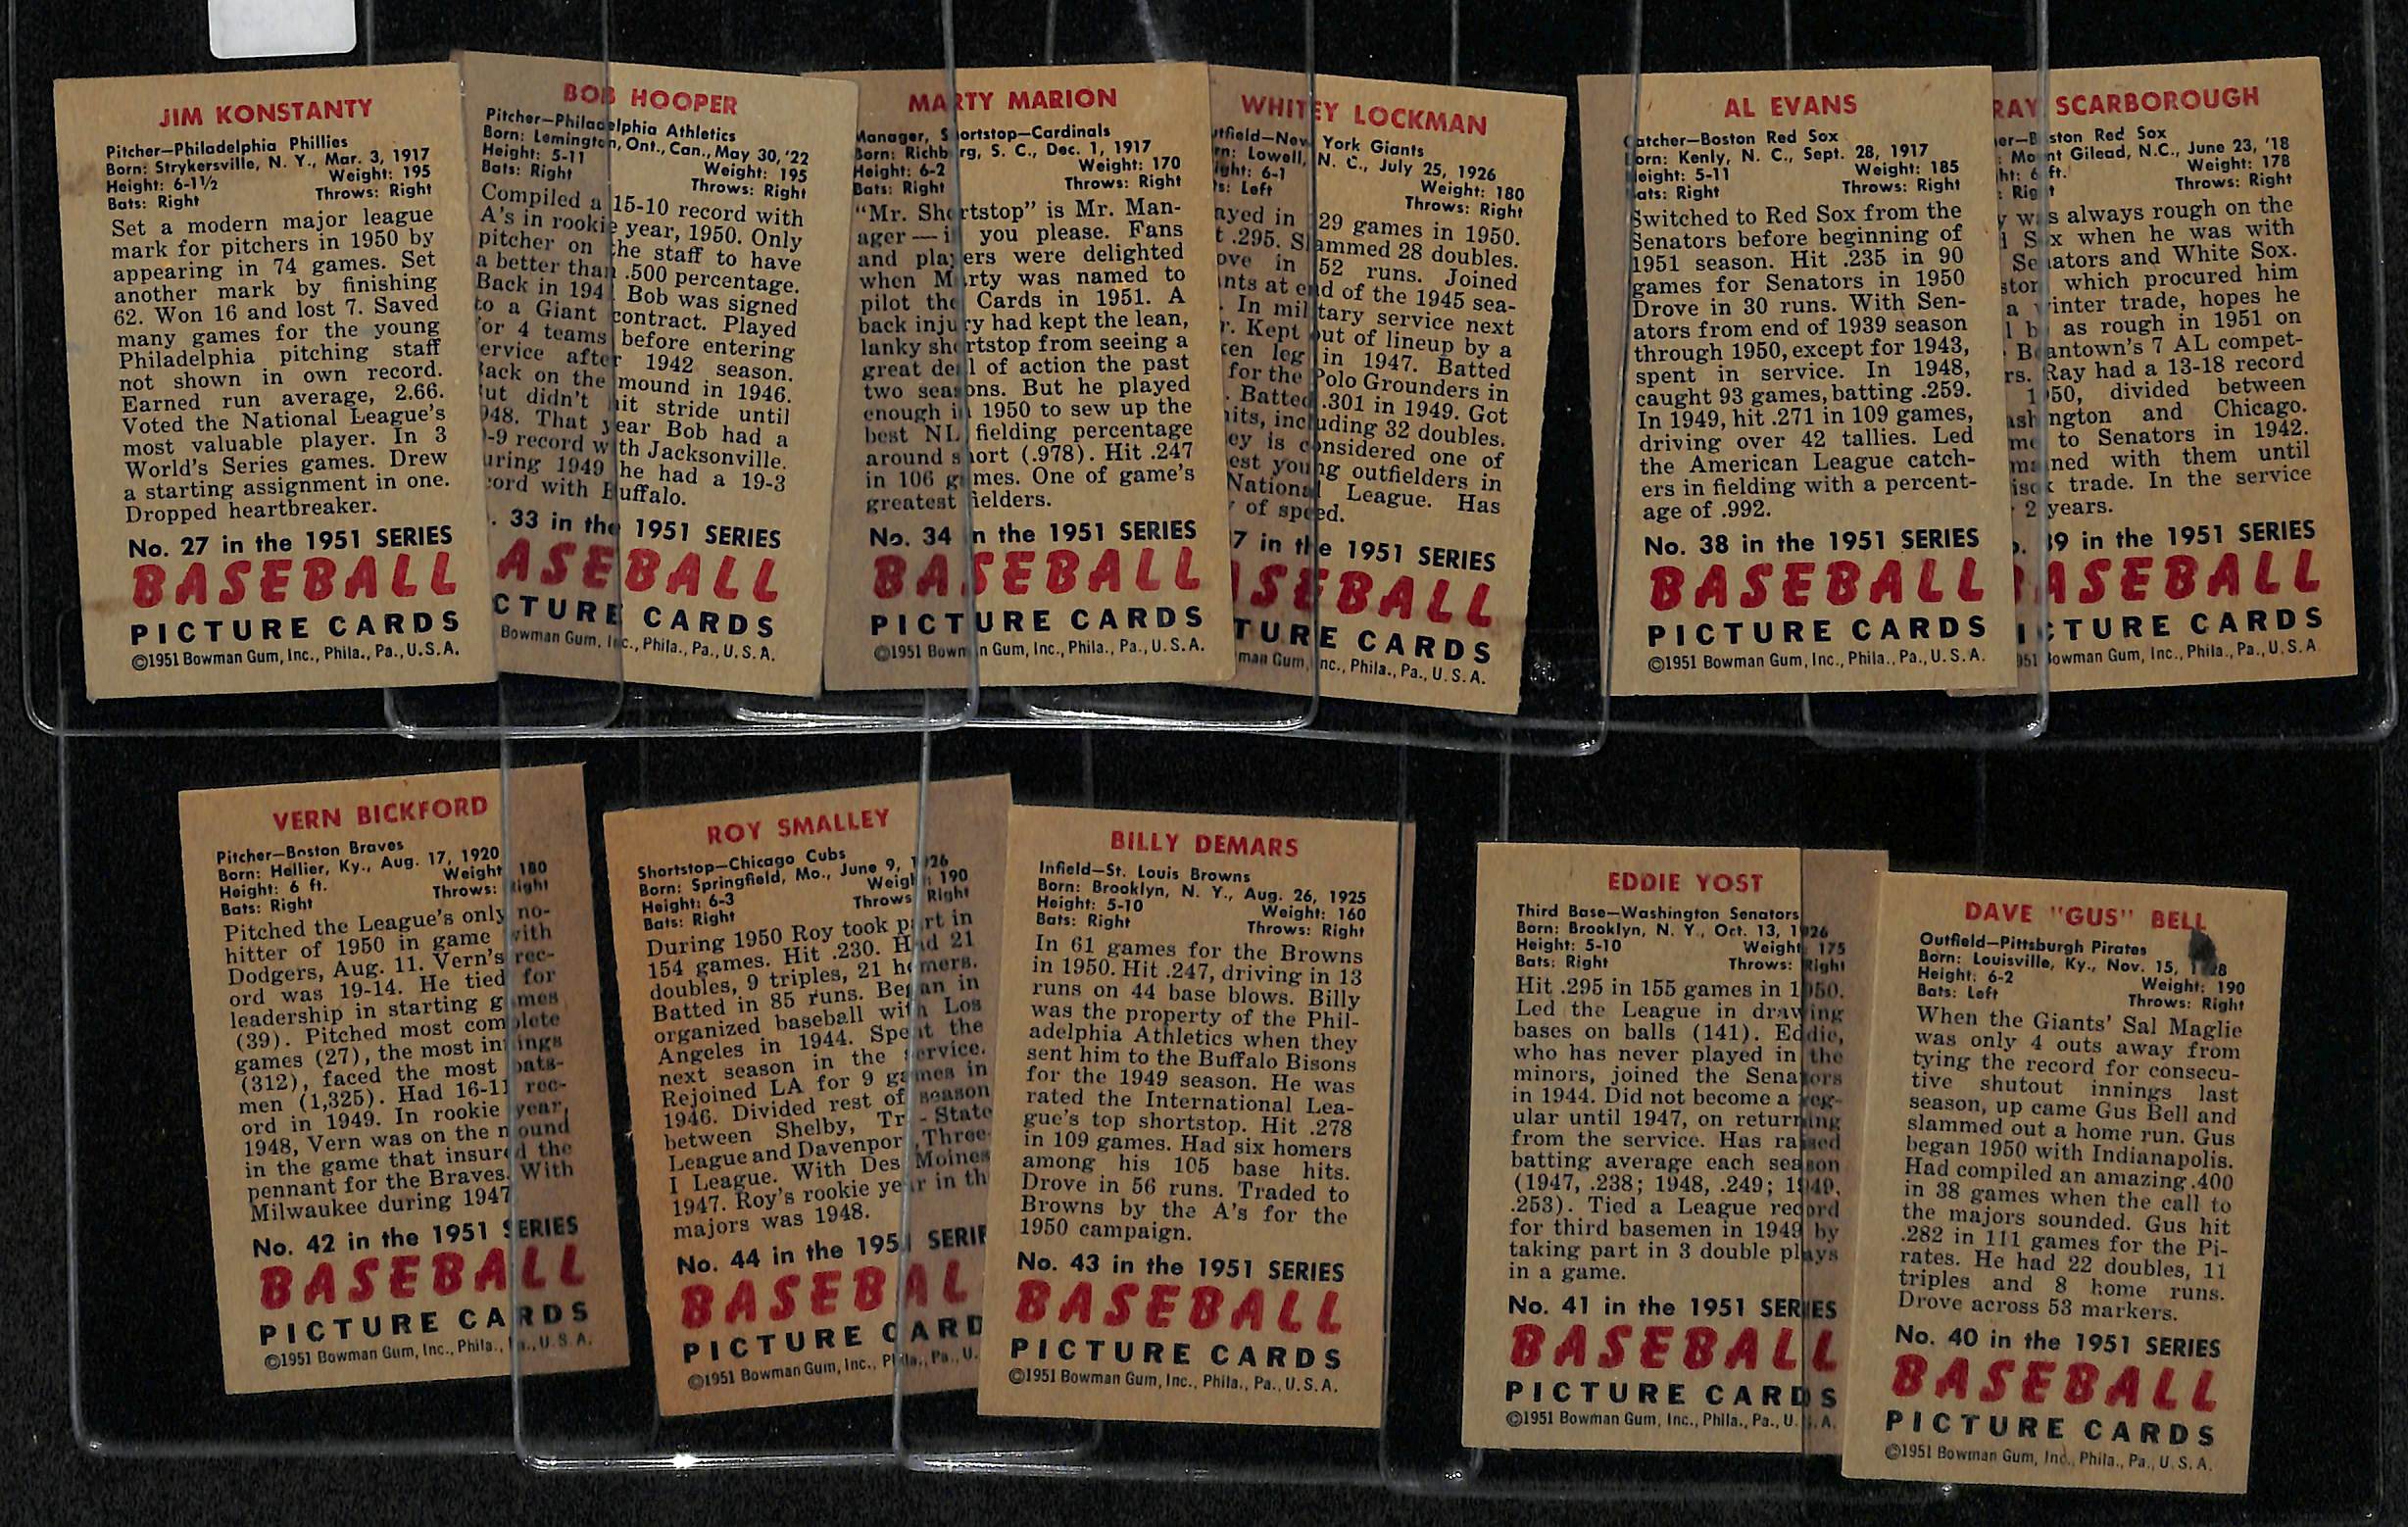 JIM KONSTANTY
Pitcher—Philadelphia Phillies
Born: Strykersville, N. Y., Mar. 3, 1917
Height: 6-1½ Weight: 195
Bats: Right Throws: Right
Set a modern major league
mark for pitchers in 1950 by
appearing in 74 games. Set
another mark by finishing
62. Won 16 and lost 7. Saved
many games for the young
Philadelphia pitching staff
not shown in own record.
Earned run average, 2.66.
Voted the National League's
most valuable player. In 3
World's Series games. Drew
a starting assignment in one.
Dropped heartbreaker.
No. 27 in the 1951 SERIES
BASEBALL
PICTURE CARDS
©1951 Bowman Gum, Inc., Phila., Pa., U.S.A.
BOB HOOPER
Pitcher—Philadelphia Athletics
Born: Lemington, Ont., Can., May 30, '22
Height: 5-11 Weight: 195
Bats: Right Throws: Right
Compiled a 15-10 record with
A's in rookie year, 1950. Only
pitcher on the staff to have
a better than .500 percentage.
Back in 1941 Bob was signed
to a Giant contract. Played
for 4 teams before entering
ervice after 1942 season.
ack on the mound in 1946.
ut didn't hit stride until
948. That year Bob had a
-9 record with Jacksonville.
uring 1949 he had a 19-3
cord with Buffalo.
. 33 in the 1951 SERIES
ASEBALL
CTURE CARDS
Bowman Gum, Inc., Phila., Pa., U.S.A.
MARTY MARION
Manager, Shortstop—Cardinals
Born: Richburg, S. C., Dec. 1, 1917
Height: 6-2 Weight: 170
Bats: Right Throws: Right
"Mr. Shortstop" is Mr. Man-
ager — if you please. Fans
and players were delighted
when Marty was named to
pilot the Cards in 1951. A
back injury had kept the lean,
lanky shortstop from seeing a
great deal of action the past
two seasons. But he played
enough in 1950 to sew up the
best NL fielding percentage
around short (.978). Hit .247
in 106 games. One of game's
greatest fielders.
No. 34 in the 1951 SERIES
BASEBALL
PICTURE CARDS
©1951 Bowman Gum, Inc., Phila., Pa., U.S.A.
WHITEY LOCKMAN
tfield—New York Giants
rn: Lowell, N. C., July 25, 1926
ight: 6-1 Weight: 180
s: Left Throws: Right
ayed in 129 games in 1950.
t .295. Slammed 28 doubles.
ove in 52 runs. Joined
nts at end of the 1945 sea-
. In military service next
r. Kept out of lineup by a
ken leg in 1947. Batted
for the Polo Grounders in
. Batted .301 in 1949. Got
hits, including 32 doubles.
ey is considered one of
est young outfielders in
National League. Has
of speed.
7 in the 1951 SERIES
ASEBALL
TURE CARDS
man Gum, Inc., Phila., Pa., U.S.A.
AL EVANS
Catcher—Boston Red Sox
Born: Kenly, N. C., Sept. 28, 1917
Height: 5-11 Weight: 185
Bats: Right Throws: Right
Switched to Red Sox from the
Senators before beginning of
1951 season. Hit .235 in 90
games for Senators in 1950
Drove in 30 runs. With Sen-
ators from end of 1939 season
through 1950, except for 1943,
spent in service. In 1948,
caught 93 games, batting .259.
In 1949, hit .271 in 109 games,
driving over 42 tallies. Led
the American League catch-
ers in fielding with a percent-
age of .992.
No. 38 in the 1951 SERIES
BASEBALL
PICTURE CARDS
©1951 Bowman Gum, Inc., Phila., Pa., U.S.A.
RAY SCARBOROUGH
er—Boston Red Sox
: Mount Gilead, N.C., June 23, '18
ht: 6 ft. Weight: 178
: Right Throws: Right
y was always rough on the
d Sox when he was with
Senators and White Sox.
ston which procured him
a winter trade, hopes he
l be as rough in 1951 on
Beantown's 7 AL compet-
rs. Ray had a 13-18 record
1950, divided between
ashington and Chicago.
me to Senators in 1942.
mained with them until
isox trade. In the service
2 years.
o. 39 in the 1951 SERIES
BASEBALL
ICTURE CARDS
951 Bowman Gum, Inc., Phila., Pa., U.S.A.
VERN BICKFORD
Pitcher—Boston Braves
Born: Hellier, Ky., Aug. 17, 1920
Height: 6 ft. Weight 180
Bats: Right Throws: Right
Pitched the League's only no-
hitter of 1950 in game with
Dodgers, Aug. 11. Vern's rec-
ord was 19-14. He tied for
leadership in starting games
(39). Pitched most complete
games (27), the most innings
(312), faced the most bats-
men (1,325). Had 16-11 rec-
ord in 1949. In rookie year,
1948, Vern was on the mound
in the game that insured the
pennant for the Braves. With
Milwaukee during 1947
No. 42 in the 1951 SERIES
BASEBALL
PICTURE CARDS
©1951 Bowman Gum, Inc., Phila., Pa., U.S.A.
ROY SMALLEY
Shortstop—Chicago Cubs
Born: Springfield, Mo., June 9, 1926
Height: 6-3 Weight: 190
Bats: Right Throws Right
During 1950 Roy took part in
154 games. Hit .230. Had 21
doubles, 9 triples, 21 homers.
Batted in 85 runs. Began in
organized baseball with Los
Angeles in 1944. Spent the
next season in the service.
Rejoined LA for 9 games in
1946. Divided rest of season
between Shelby, Tri-State
League and Davenport, Three
I League. With Des Moines
1947. Roy's rookie year in th
majors was 1948.
No. 44 in the 1951 SERIE
BASEBAL
PICTURE CARD
©1951 Bowman Gum, Inc., Phila., Pa., U.
BILLY DEMARS
Infield—St. Louis Browns
Born: Brooklyn, N. Y., Aug. 26, 1925
Height: 5-10 Weight: 160
Bats: Right Throws: Right
In 61 games for the Browns
in 1950. Hit .247, driving in 13
runs on 44 base blows. Billy
was the property of the Phil-
adelphia Athletics when they
sent him to the Buffalo Bisons
for the 1949 season. He was
rated the International Lea-
gue's top shortstop. Hit .278
in 109 games. Had six homers
among his 105 base hits.
Drove in 56 runs. Traded to
Browns by the A's for the
1950 campaign.
No. 43 in the 1951 SERIES
BASEBALL
PICTURE CARDS
©1951 Bowman Gum, Inc., Phila., Pa., U.S.A.
EDDIE YOST
Third Base—Washington Senators
Born: Brooklyn, N. Y., Oct. 13, 1926
Height: 5-10 Weight: 175
Bats: Right Throws: Right
Hit .295 in 155 games in 1950.
Led the League in drawing
bases on balls (141). Eddie,
who has never played in the
minors, joined the Senators
in 1944. Did not become a reg-
ular until 1947, on returning
from the service. Has raised
batting average each season
(1947, .238; 1948, .249; 1949,
.253). Tied a League record
for third basemen in 1949 by
taking part in 3 double plays
in a game.
No. 41 in the 1951 SERIES
BASEBALL
PICTURE CARDS
©1951 Bowman Gum, Inc., Phila., Pa., U.S.A.
DAVE "GUS" BELL
Outfield—Pittsburgh Pirates
Born: Louisville, Ky., Nov. 15, 1928
Height: 6-2 Weight: 190
Bats: Left Throws: Right
When the Giants' Sal Maglie
was only 4 outs away from
tying the record for consecu-
tive shutout innings last
season, up came Gus Bell and
slammed out a home run. Gus
began 1950 with Indianapolis.
Had compiled an amazing .400
in 38 games when the call to
the majors sounded. Gus hit
.282 in 111 games for the Pi-
rates. He had 22 doubles, 11
triples and 8 home runs.
Drove across 53 markers.
No. 40 in the 1951 SERIES
BASEBALL
PICTURE CARDS
©1951 Bowman Gum, Inc., Phila., Pa., U.S.A.